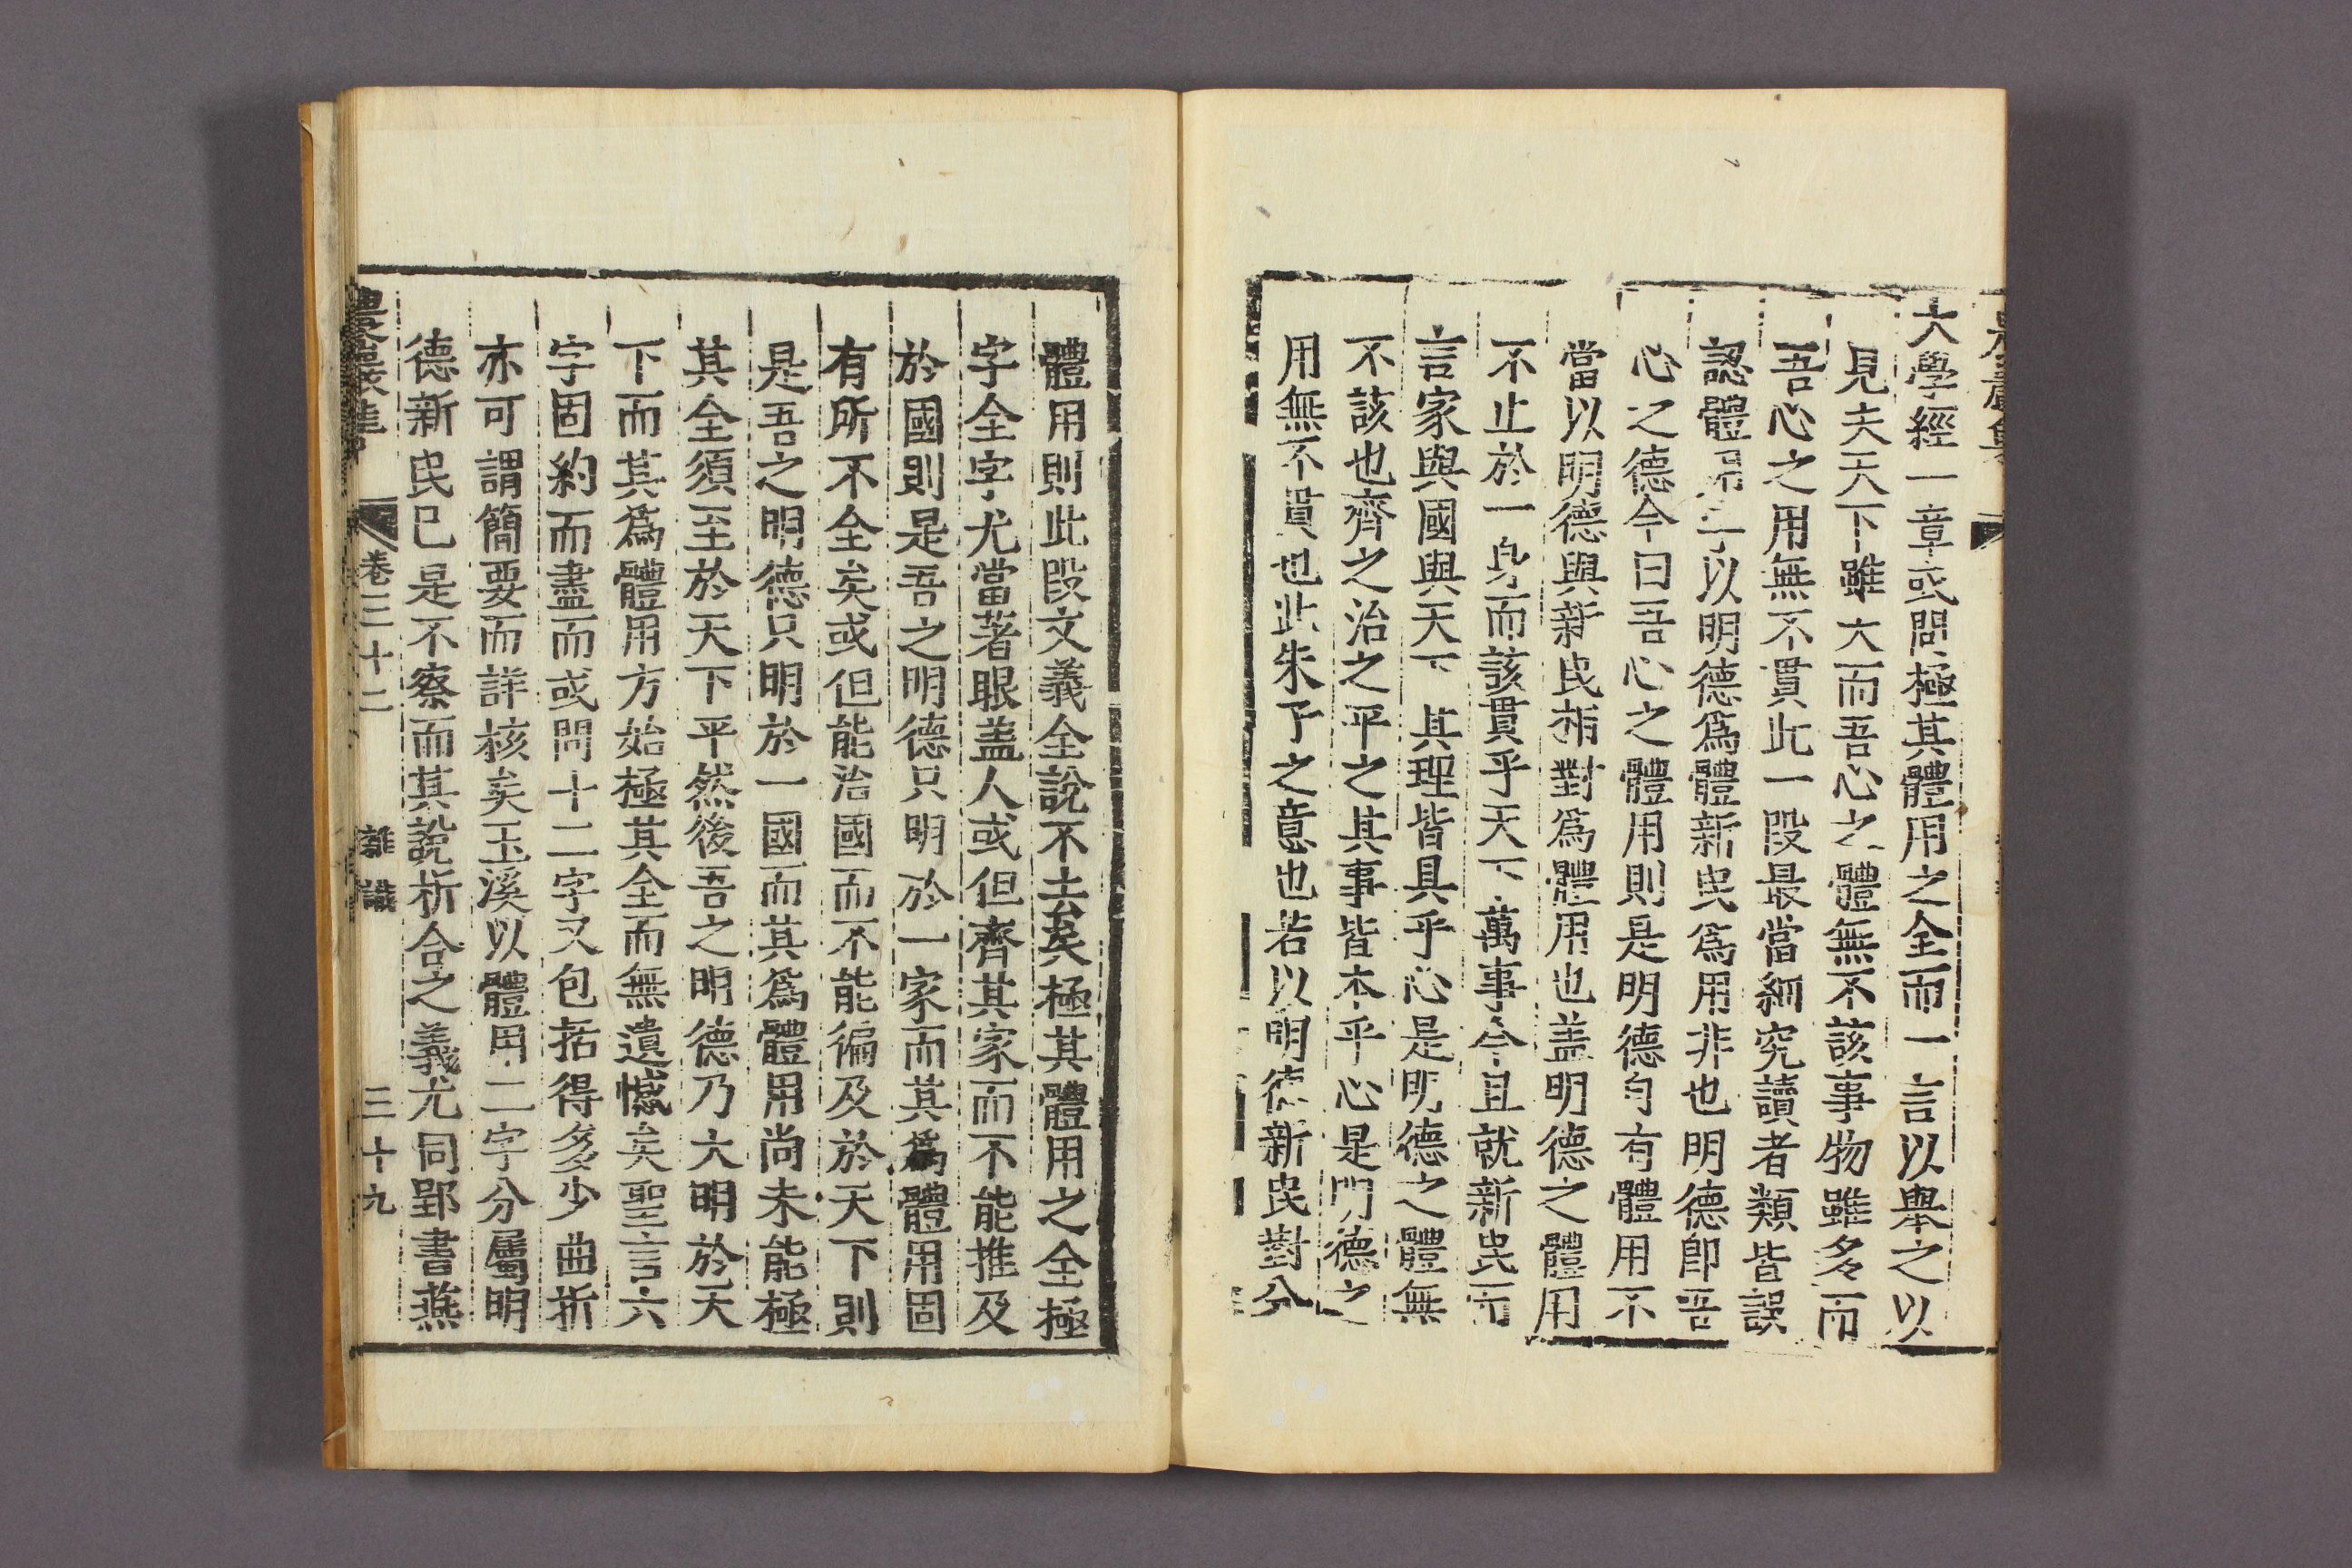 大學經一章或問極其體用之全而一言以舉之以
見夫天下雖大而吾心之體無不該事物雖多而
吾心之用無不貫此一段最當細究讀者類皆誤
認體用二字以明德爲體新民爲用非也明德卽吾
心之德今曰吾心之體用則是明德自有體用不
當以明德與新民相對爲體用也盖明德之體用
不止於一身而該貫乎天下萬事今且就新民而
言家與國與天下其理皆具乎心是明德之體無
不該也齊之治之平之其事皆本乎心是明德之
用無不貫也此朱子之意也若以明德新民對分
體用則此段文義全說不去矣極其體用之全極
字全字尤當著眼盖人或但齊其家而不能推及
於國則是吾之明德只明於一家而其爲體用固
有所不全矣或但能治國而不能徧及於天下則
是吾之明德只明於一國而其爲體用尚未能極
其全須至於天下平然後吾之明德乃大明於天
下而其爲體用方始極其全而無遺憾矣聖言六
字固約而盡而或問十二字又包括得多少曲折
亦可謂簡要而詳核矣玉溪以體用二字分屬明
德新民已是不察而其說析合之義尤同郢書燕
農巖集 卷三十二 雜識 三十九